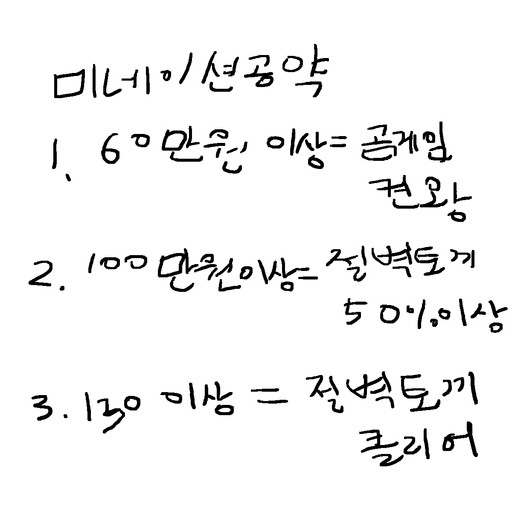 미네이션공약
1. 60만원 이상= 곰게임
켠왕
2. 100만원이상= 절벽토끼
50%이상
3. 130 이상 = 절벽토끼
클리어